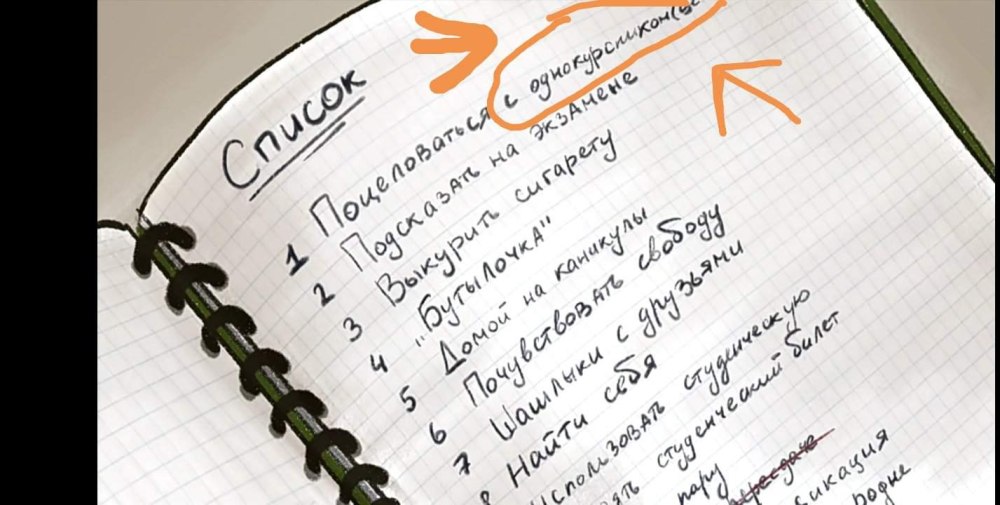 Список
1 Поцеловаться с однокурсником
2 Подсказать на экзамене
3 Выкурить сигарету
4 "Бутылочка"
5 Домой на каникулы
6 Почувствовать свободу
7 Шашлыки с друзьями
8 Найти себя
студенческую
студенческий билет
пару